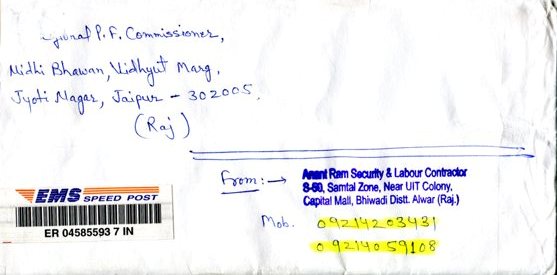 P.F. Commissioner,
Nidhi Bhawan, Vidhyut Marg,
Jyoti Nagar, Jaipur - 302005.
(Raj)
From: →
Anant Ram Security & Labour Contractor
S-60, Samtal Zone, Near UIT Colony,
Capital Mall, Bhiwadi Distt. Alwar (Raj.)
Mob. 09214203431
09214059108
EMS SPEED POST
ER 04585593 7 IN